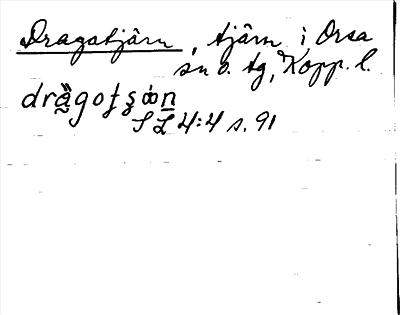 Dragatjärn, tjärn i Orsa
sn o. tg, Kopp. l.
drầ̰goţşòn̲
SL 4:4 s. 91